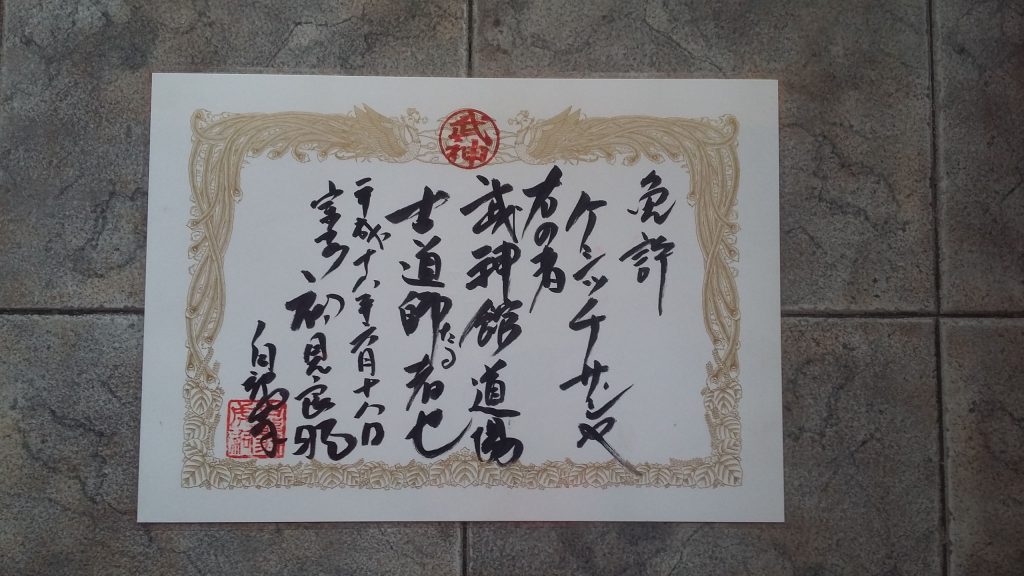 武神
免許
ケシッチ サシャ
右の者
武神館道場
士道師たる者也
平成十八年六月十八日
宗家 初見良昭
白龍